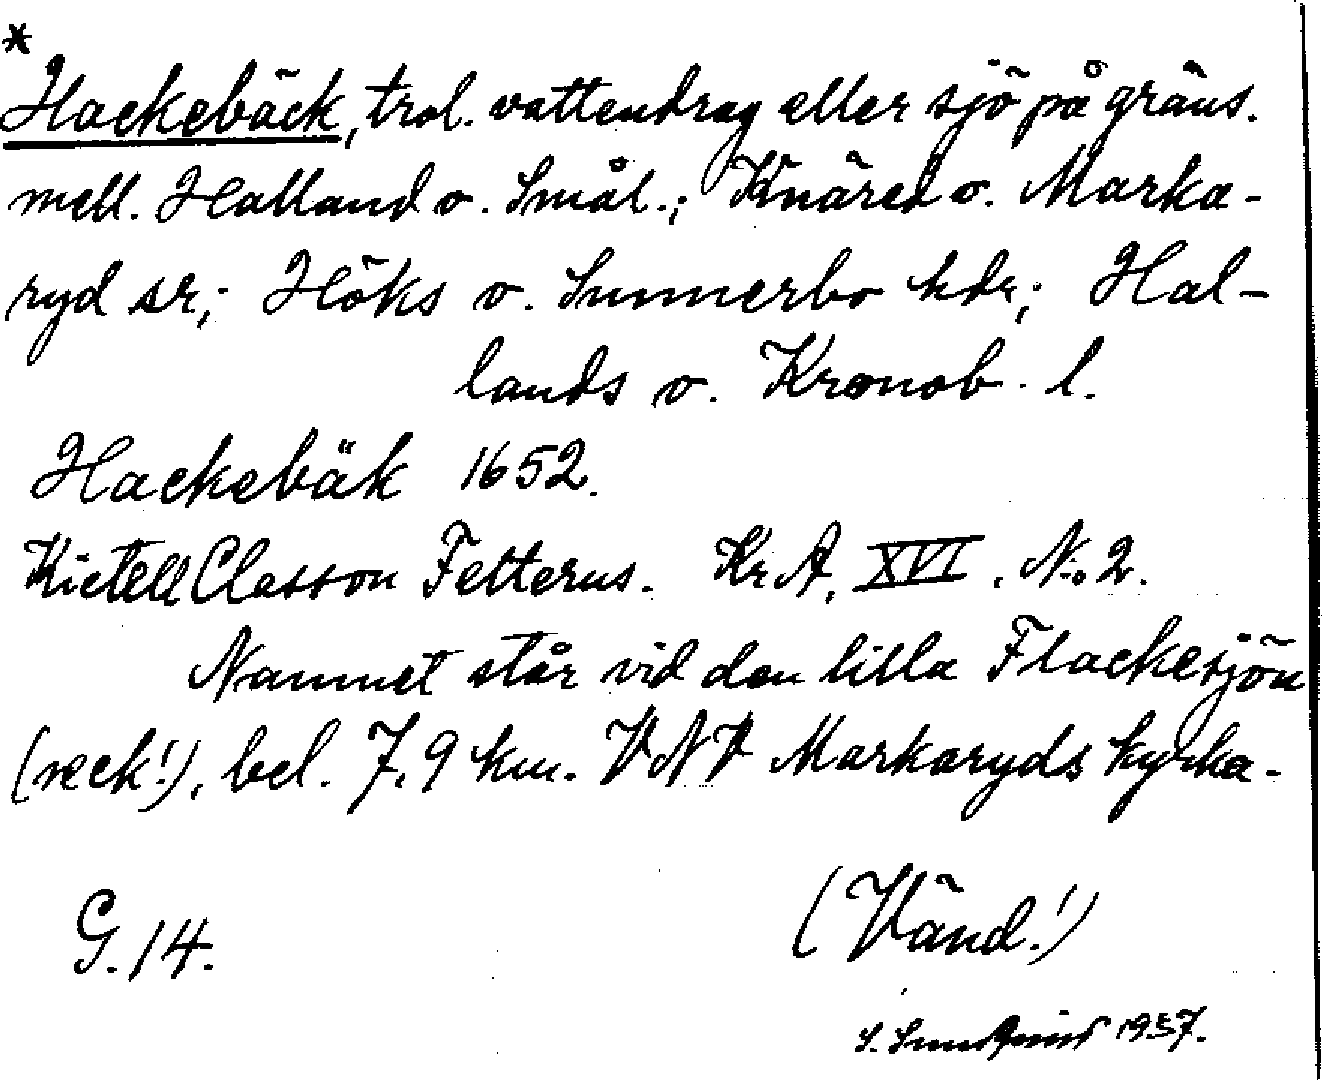 *
Hackebäck, trol. vattendrag eller sjö på gräns.
mell. Halland o. Smål.; Knäred o. Marka-
ryd sr; Höks o. Sunnerbo hdr; Hal-
lands o. Kronob. l.
Hackebäk 1652.
Kietell Classon Felterus. Kr. A, XVI. N:o 2.
Namnet står vid den lilla Flackesjön
(reck!), bel. 7,9 km. VNV Markaryds kyrka.
G. 14.
(Vänd!)
S. 1957.